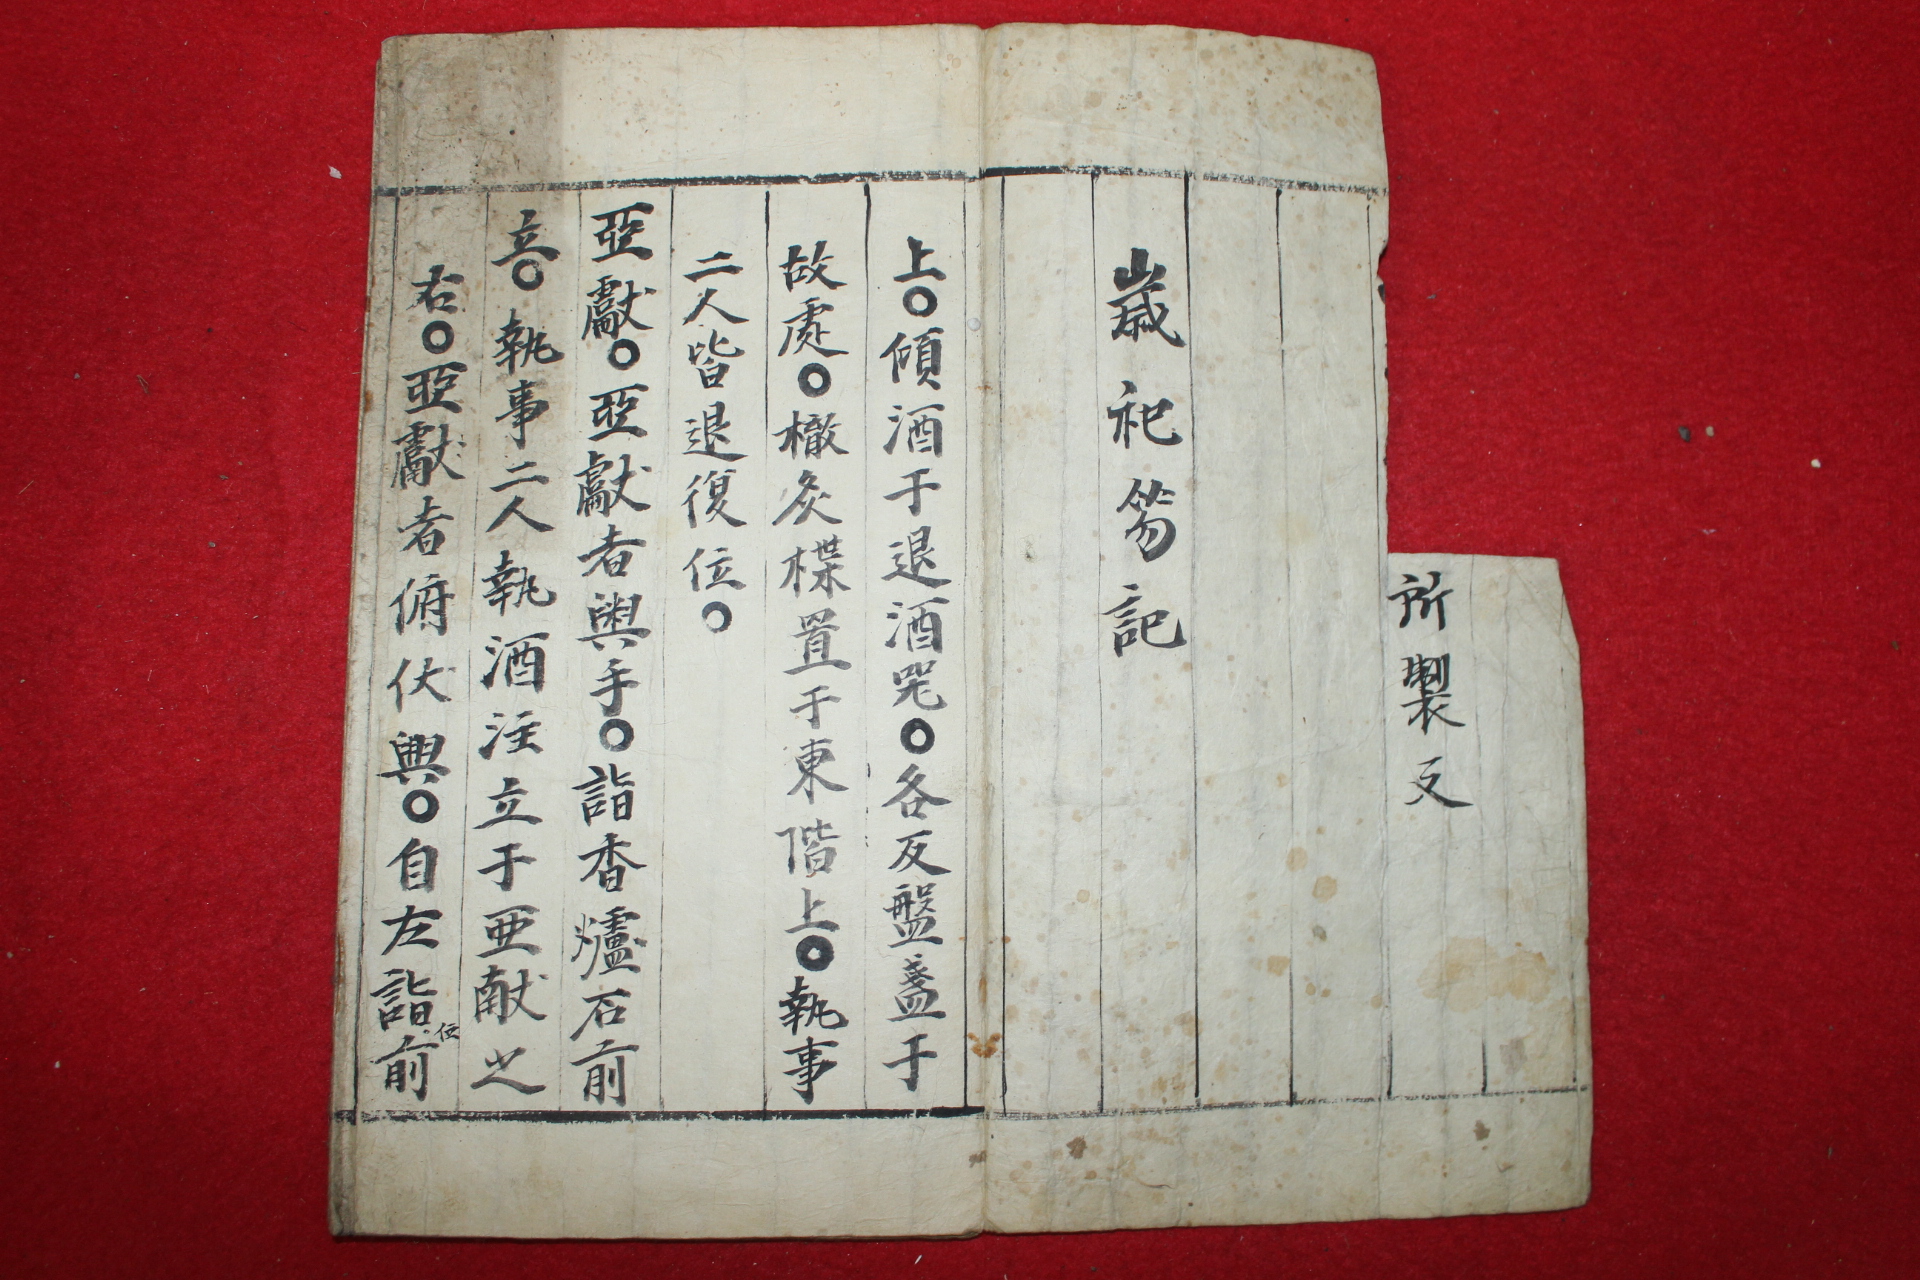 所製文
歲祀笏記
上○傾酒于退酒器○各反盤盞于
故處○撤炙楪置于東階上○執事
二人皆退復位○
亞獻○亞獻者盥手○詣香爐石前
立○執事二人執酒注立于亜献之
右○亞獻者俯伏興○自左詣位前